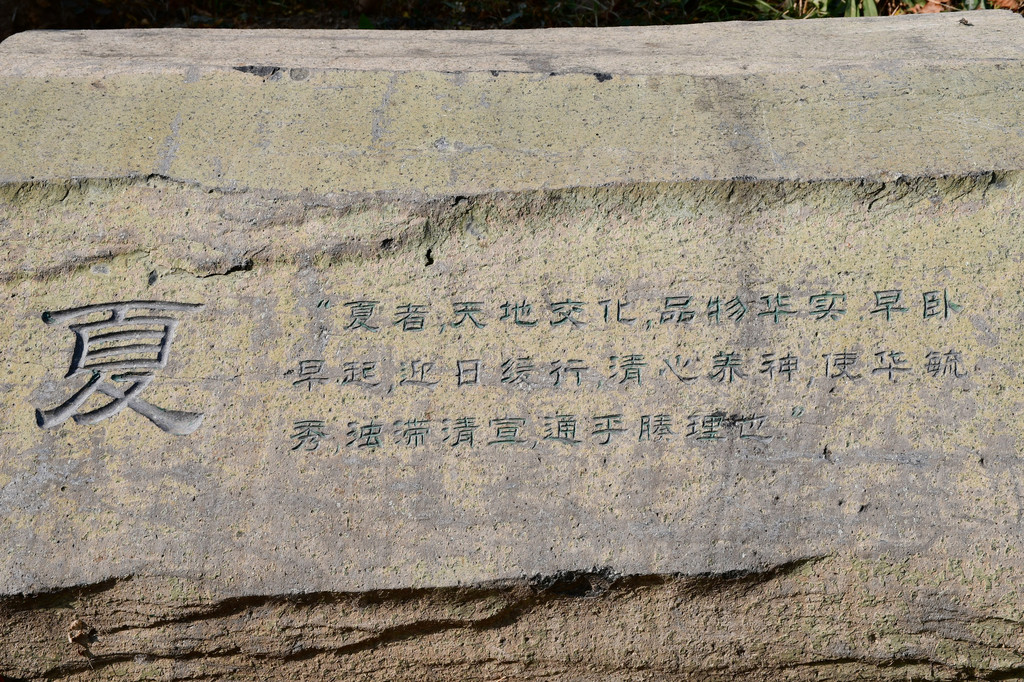 夏
“夏者,天地交化,品物华实 早卧
早起,迎日缓行,清心养神,使华毓
秀,浊滞清宣,通乎腠理也”